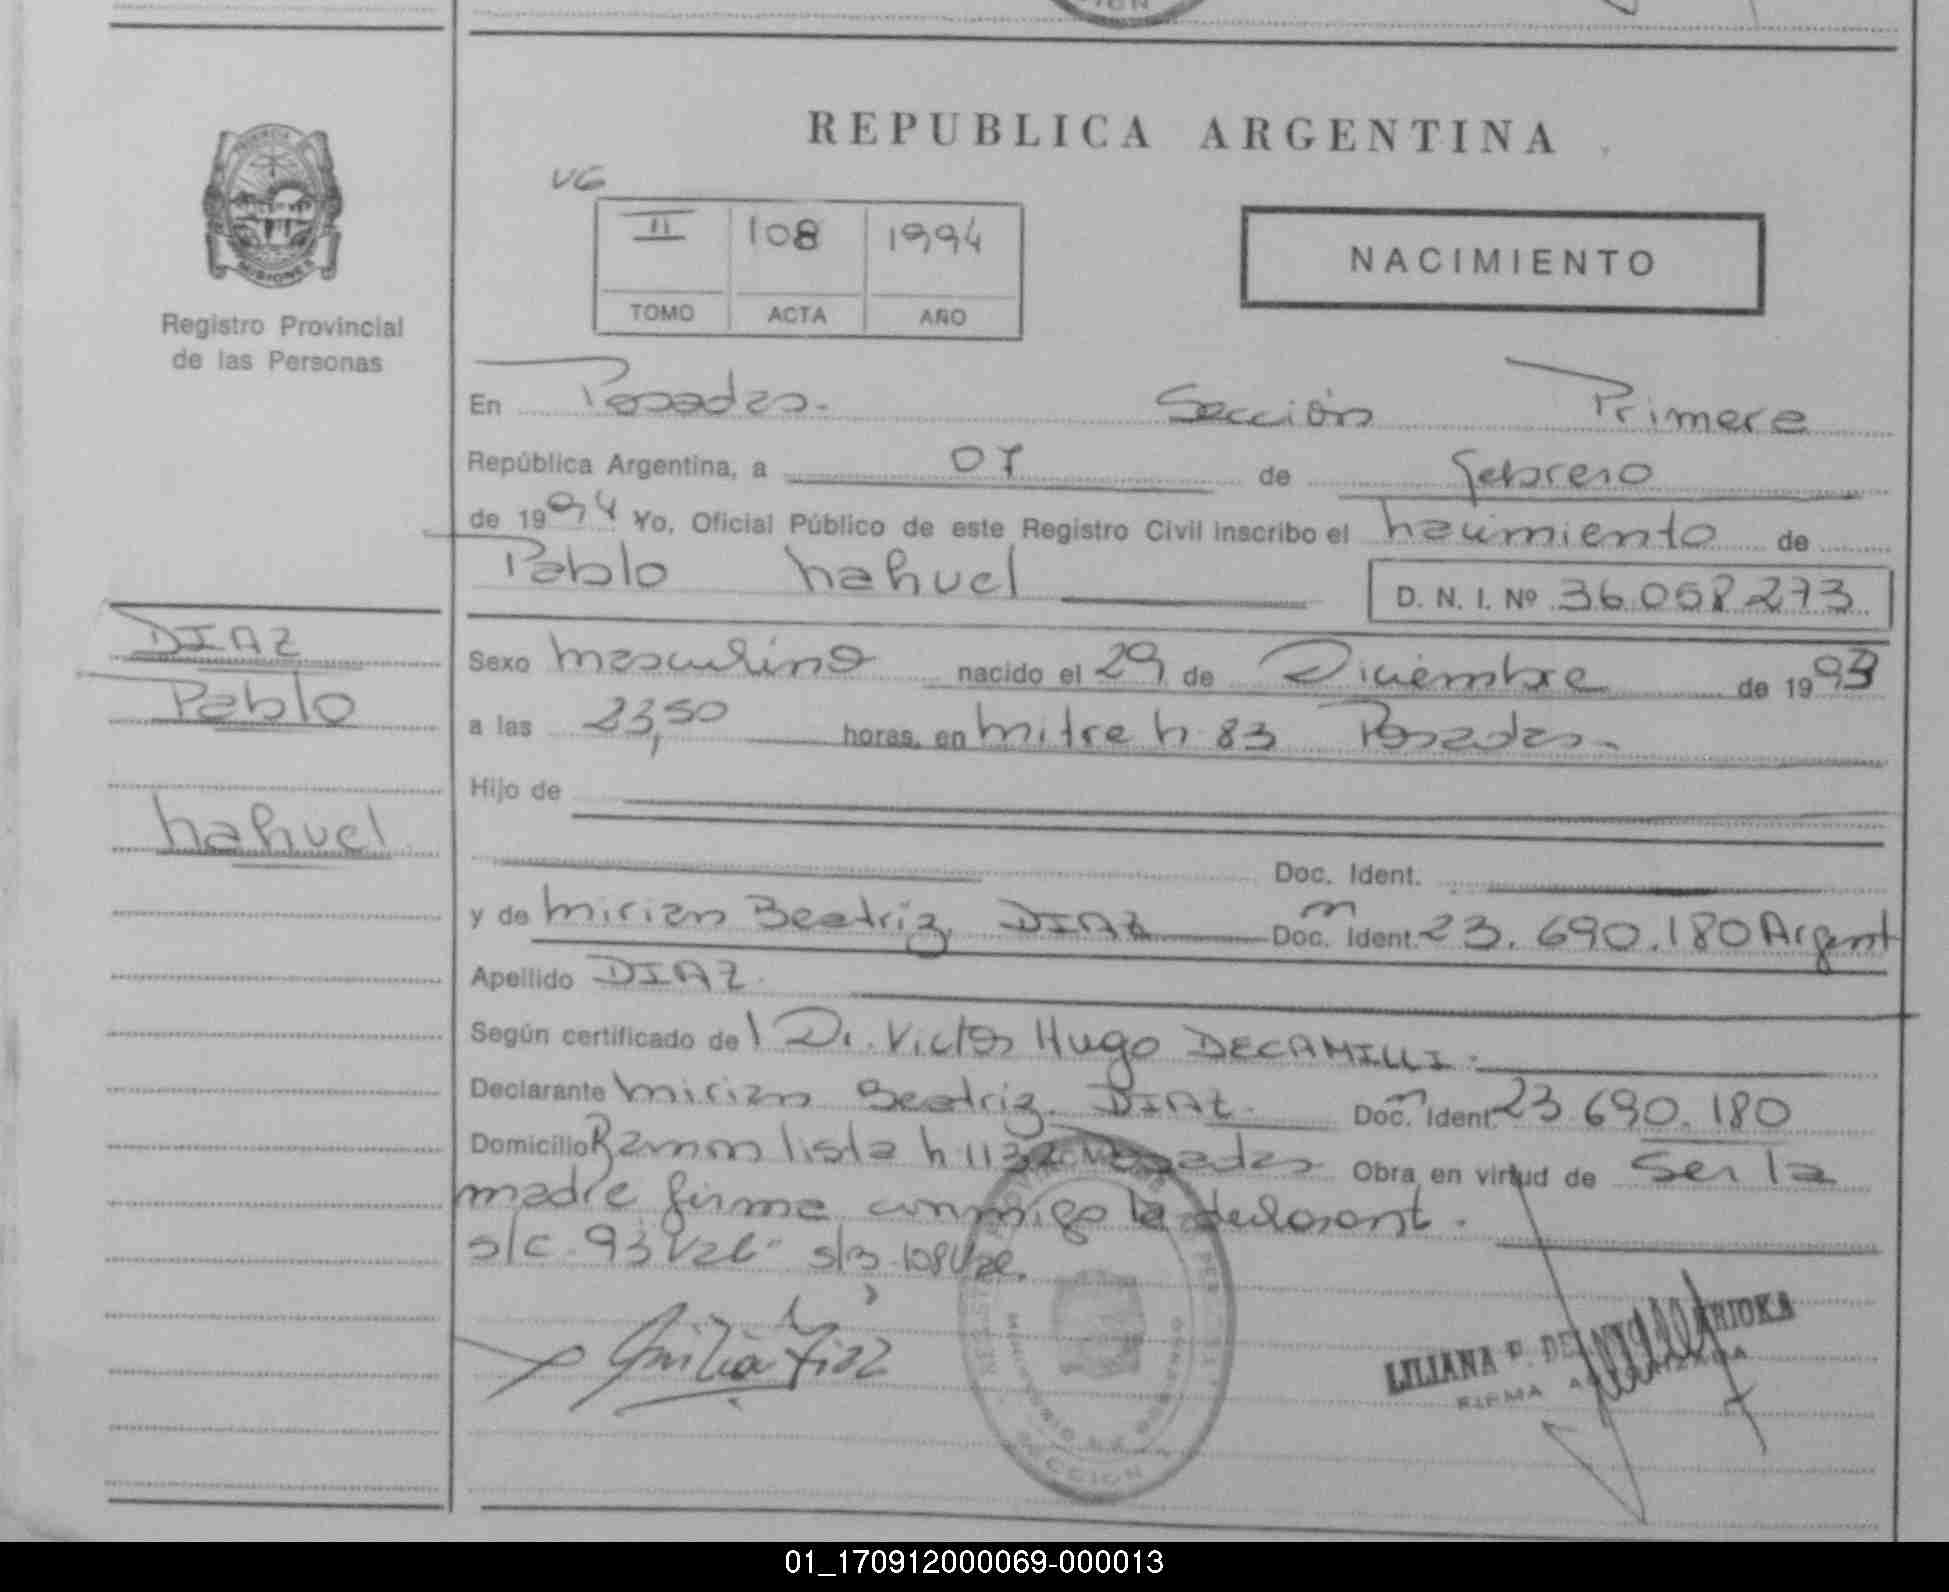 REPUBLICA ARGENTINA
VG
II 108 1994
TOMO ACTA AÑO
NACIMIENTO
MISIONES
Registro Provincial
de las Personas
En Posadas. Sección Primera
República Argentina, a 07 de febrero
de 1994 Yo, Oficial Público de este Registro Civil inscribo el nacimiento de
Pablo nahuel D. N. I. Nº 36.058.273
DIAZ
Pablo
nahuel
Sexo masculino nacido el 29 de Diciembre de 1993
a las 23,50 horas, en mitre n 83 Posadas.
Hijo de
Doc. Ident.
y de mirian Beatriz DIAZ Doc. Ident. 23.690.180 Argent
Apellido DIAZ.
Según certificado del Dr. Victor Hugo DECAMILLI.
Declarante mirian Beatriz DIAZ. Doc. Ident. 23.690.180
Domicilio Ramon lista n Posadas Obra en virtud de ser la
madre firma conmigo la declarant.
s/c. 93 Vale s/3. 108 Vale.
LILIANA P. DE
FIRMA
SECCION
01_170912000069-000013